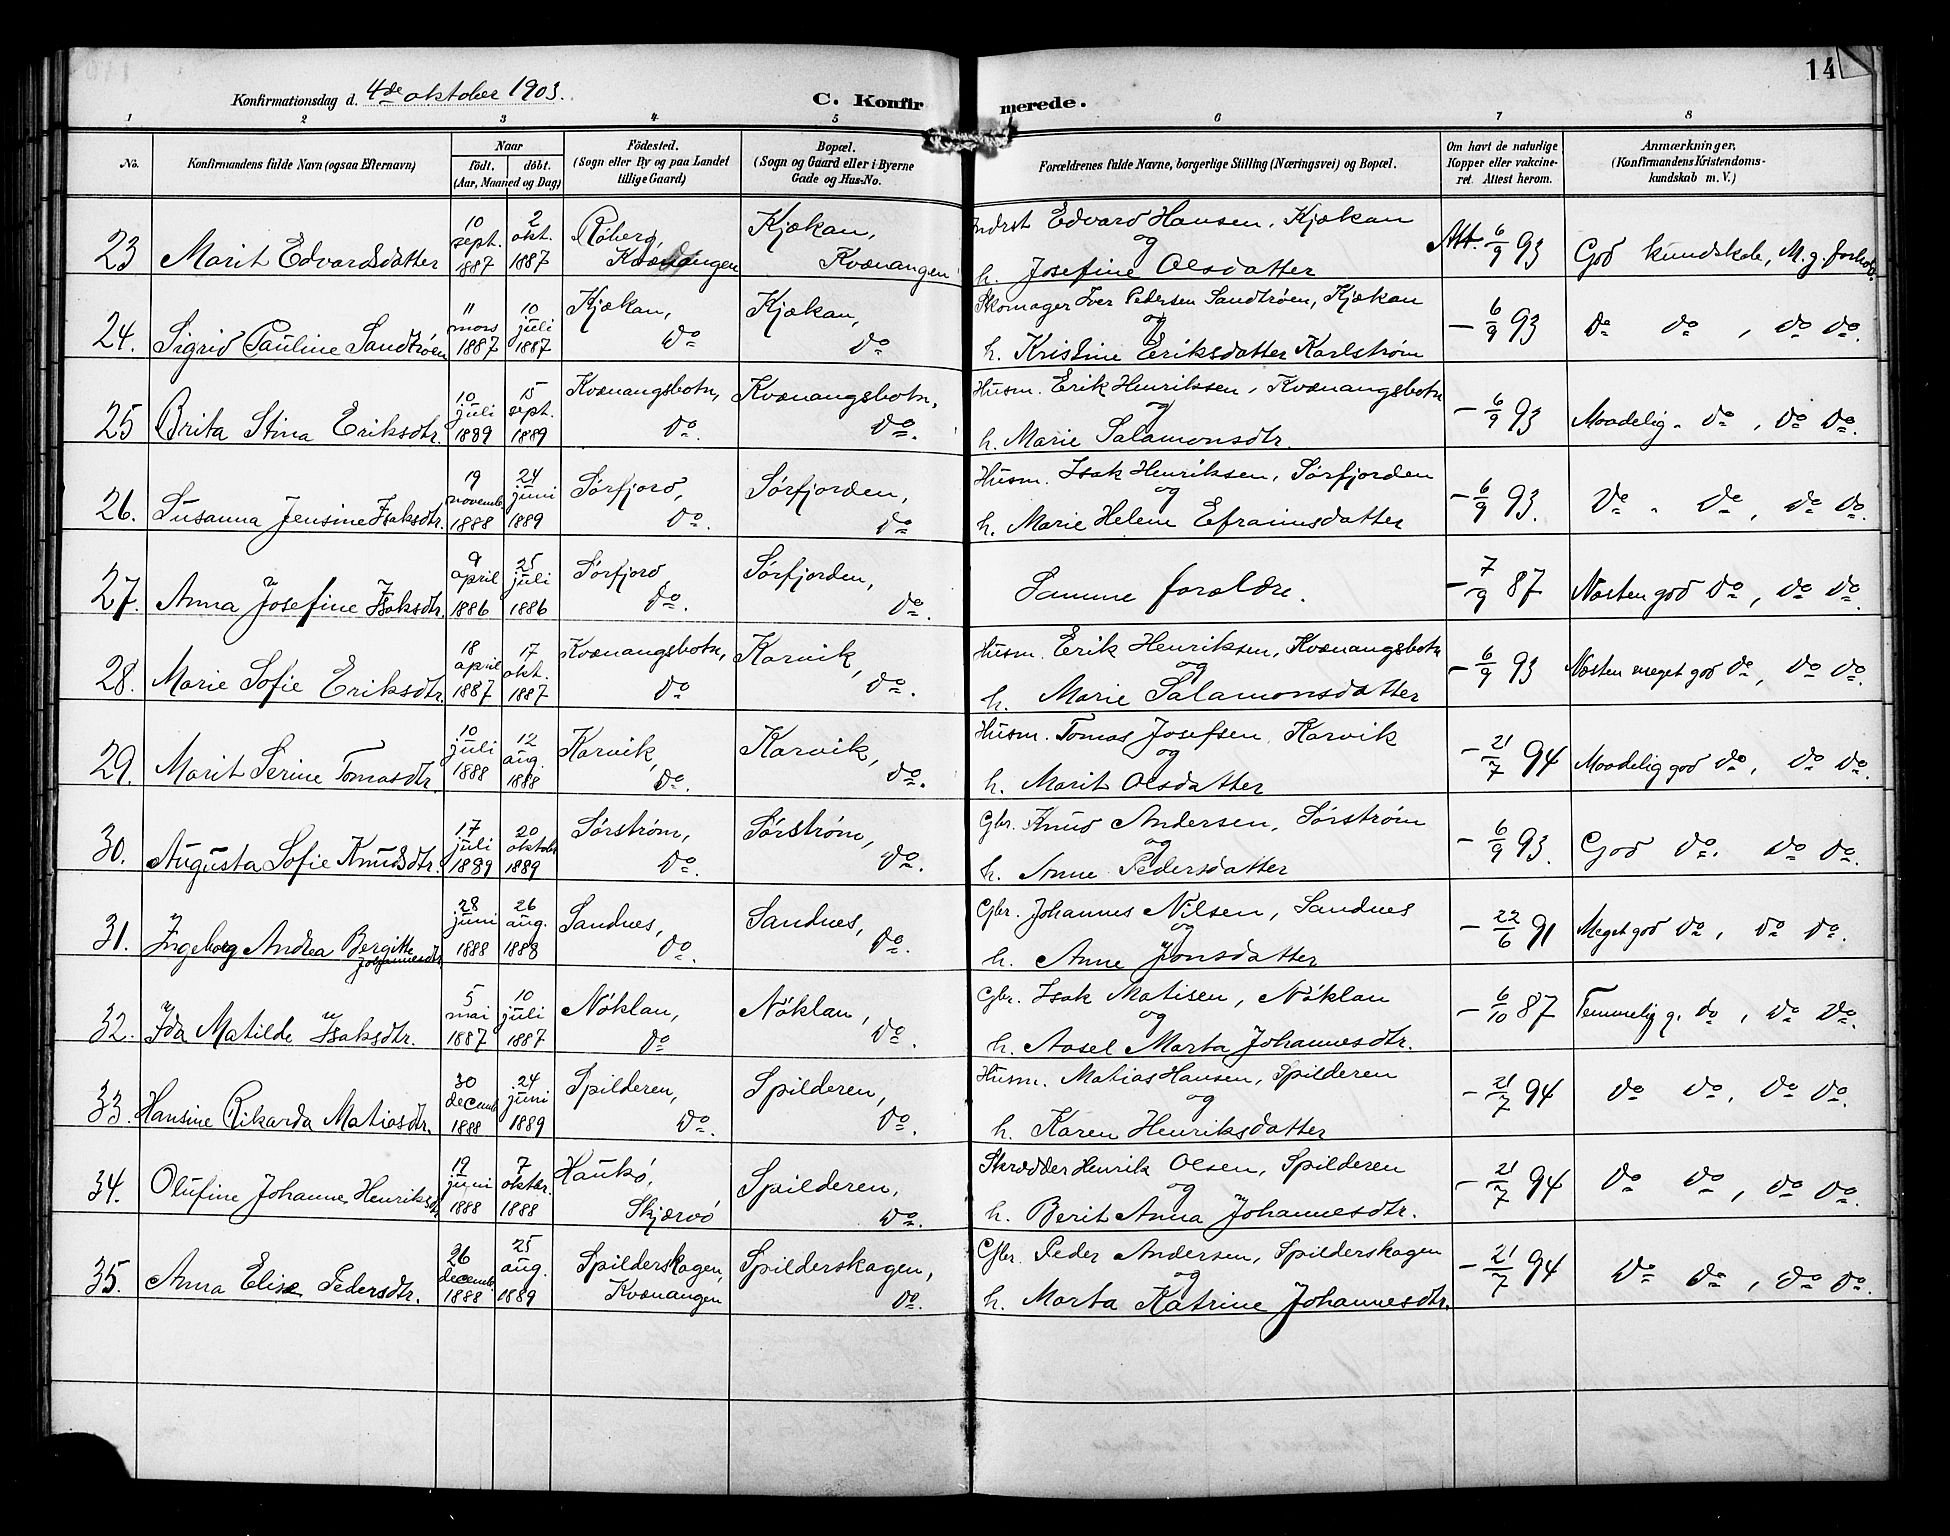 14
Konfirmationsdag d. 4de oktober 1903.
C. Konfirmerede.
1 2 3 4 5 6 7 8
No.
Konfirmandens fulde Navn (ogsaa Efternavn)
Naar
födt. döbt.
(Aar, Maaned og Dag)
Födested.
(Sogn eller By og paa Landet
tillige Gaard)
Bopæl.
(Sogn og Gaard eller i Byerne
Gade og Hus-No.
Forældrenes fulde Navne, borgerlige Stilling (Næringsvei) og Bopæl.
Om havt de naturlige
Kopper eller vakcine-
ret. Attest herom.
Anmærkninger.
(Konfirmandens Kristendoms-
kundskab m. V.)
23 Marit Edvardsdatter
10 sept. 1887
2 okt. 1887
Kvænangen
Kjækan,
Kvænangen
Indrst Edvard Hansen, Kjækan
og
h. Josefine Olsdatter
Att. 6/9 93
God kundskab, M. g. forhold
24. Sigrid Pauline Sandtrøen
11 mars 1887
10 juli 1887
Kjækan,
do
Kjækan,
do
Skomager Iver Pedersen Sandtrøen, Kjækan
og
h. Kristine Eriksdatter Karlstrøm
— 6/9 93
do do, do do.
25 Brita Stina Eriksdtr.
10 juli 1889
15 sept. 1889
Kvænangsbotn,
do.
Kvænangsbotn,
do.
Husm. Erik Henriksen, Kvænangsbotn
og
h. Marie Salamonsdtr.
— 6/9 93
Maadelig - do, do do.
26. Susanna Jensine Isaksdtr.
19 novemb. 1888
24 juni 1889
Sørfjord,
do.
Sørfjorden,
do
Husm. Isak Henriksen, Sørfjorden
og
h. Marie Helene Efraimsdatter
— 6/9 93.
do - do, do do.
27. Anna Josefine Isaksdtr.
9 april 1886
25 juli 1886
Sørfjord
do.
Sørfjorden,
do.
Samme forældre.
— 7/9 87
Næsten god do, do do.
28. Marie Sofie Eriksdtr.
18 april 1887
17 okt. 1887
Kvænangsbotn,
do
Karvik,
do.
Husm. Erik Henriksen, Kvænangsbotn
og
h. Marie Salamonsdatter
— 6/9 93
Næsten meget god do, do do.
29. Marit Serine Tomasdtr.
10 juli 1888
12 aug. 1888
Karvik,
do.
Karvik,
do.
Husm. Tomas Josefsen, Karvik
og
h. Marit Olsdatter
— 21/7 94
Maadelig god do, do do.
30. Augusta Sofie Knudsdtr.
17 juli 1889
20 oktobr 1889
Sørstrøm,
do.
Sørstrøm,
do.
Gbr. Knud Andersen, Sørstrøm
og
h. Anne Pedersdatter
— 6/9 93.
God do. do do.
31. Ingeborg Andrea Bergitte
Johannesdtr.
28 juni 1888
26 aug. 1888
Sandnes,
do.
Sandnes,
do.
Gbr. Johannes Nilsen, Sandnes
og
h. Anne Jonsdatter
— 22/6 91
Meget god do, do do.
32. Ida Matilde Isaksdtr.
5 mai 1887
10 juli 1887
Nöklan,
do
Nöklan,
do.
Gbr. Isak Matisen, Nöklan
og
h. Aasel Marta Johannesdtr.
— 6/10 87
Temmelig g. do, do do.
33. Hansine Rikarda Matiasdtr.
30 decemb. 1888
24 juni 1889
Spilderen,
do.
Spilderen,
do.
Husm. Matias Hansen, Spilderen
og
h. Karen Henriksdatter
— 21/7 94
do do, do do.
34. Olufine Johanne Henriksdtr
19 juni 1888
7 oktbr. 1888
Haukö,
Skjærvö
Spilderen,
do.
Skrædder Henrik Olsen, Spilderen
og
h. Berit Anna Johannesdtr.
— 21/7 94
do do, do do.
35. Anna Elise Pedersdtr.
26 decemb. 1888
25 aug. 1889
Spilderskagen,
Kvænangen
Spilderskagen,
do.
Gbr. Peder Andersen, Spilderskagen
og
h. Marta Katrine Johannesdtr.
— 21/7 94
do do, do do.